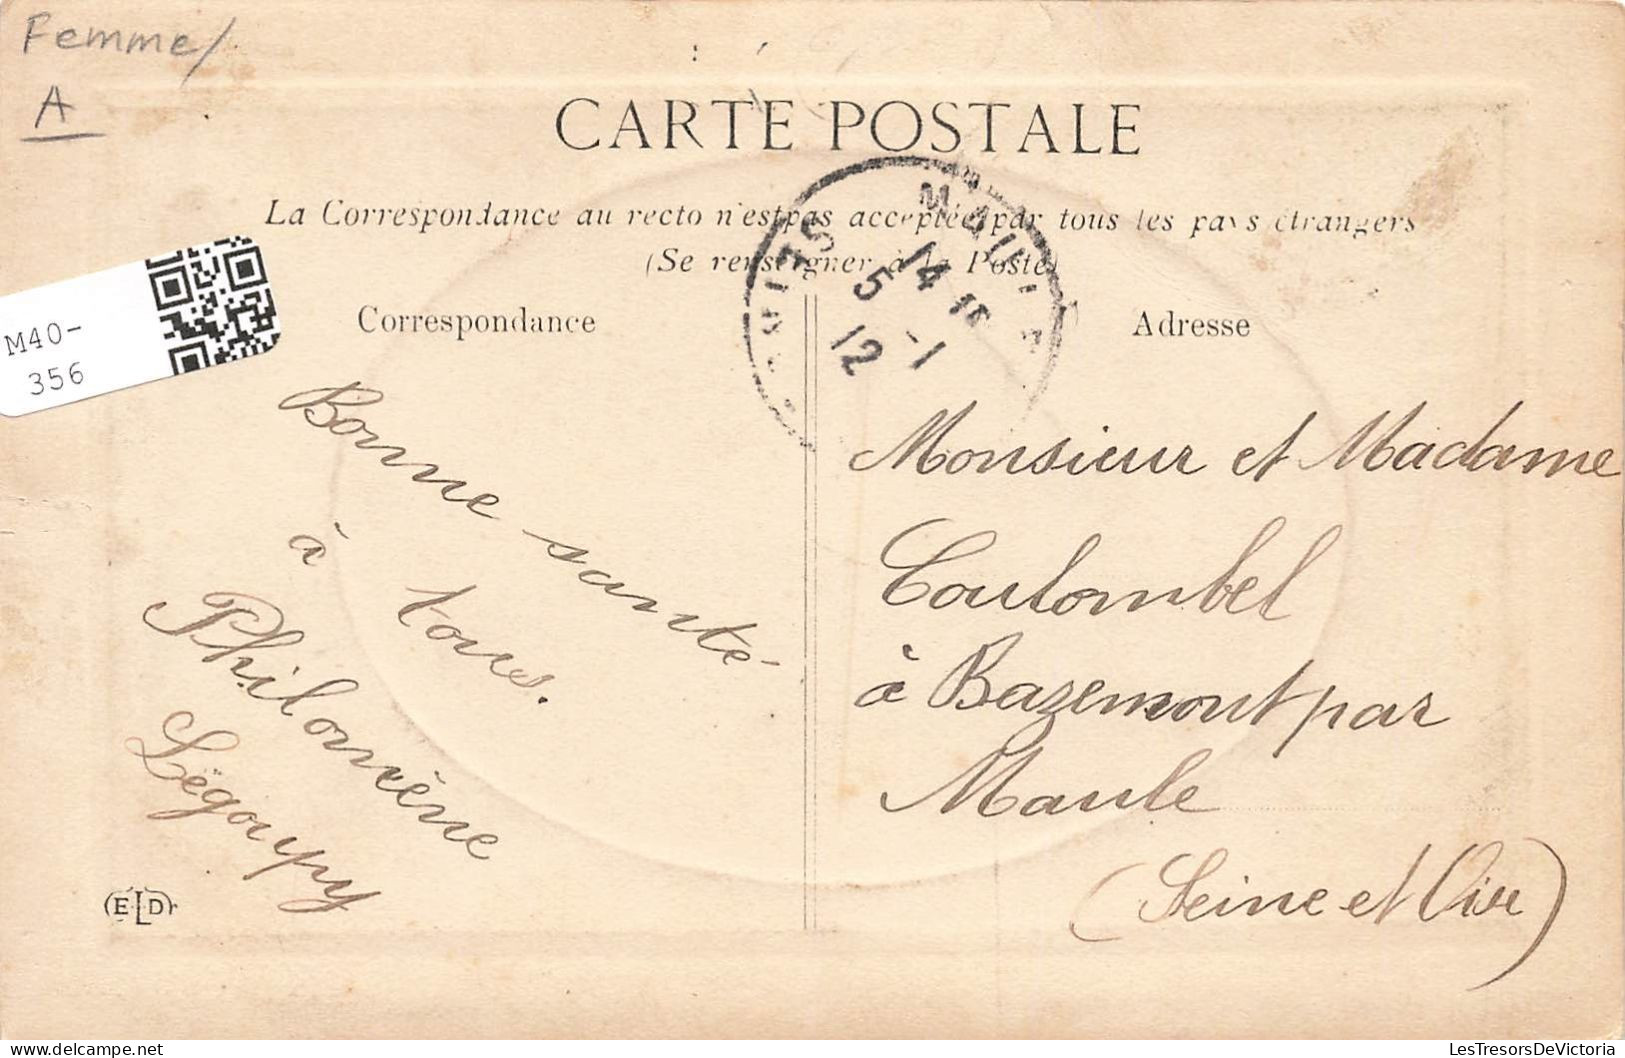 Femme/
A
CARTE POSTALE
La Correspondance au recto n'est pas acceptée par tous les pays étrangers
(Se renseigner à la Poste)
M40-
356
Correspondance
14
5 -1
12
Adresse
Bonne santé
à tous.
Philomène
Légoupy
ELD
Monsieur et Madame
Coulombel
à Bazemont par
Maule
(Seine et Oise)
LesTresorsDeVictoria